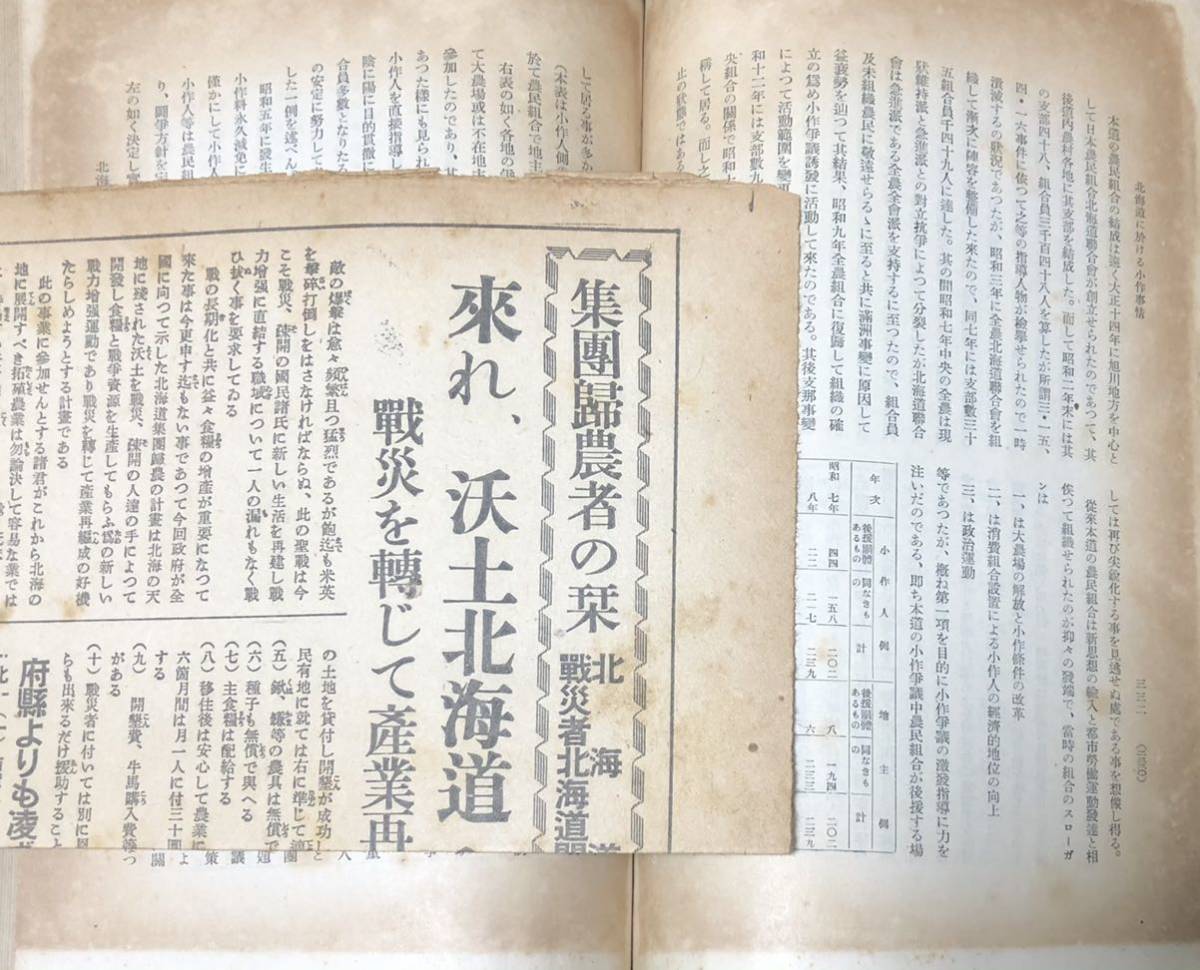 北海道に於ける小作事情
三三二
本道の農民組合の結成は遠く大正十四年に旭川地方を中心と
して日本農民組合北海道聯合會が創立せられたのであつて、其
後道内農村各地に其支部を結成した。而して昭和二年末には其
の支部四十八、組合員三千百四十八人を算したが所謂三・一五、
四・一六事件に依つて之等の指導人物が檢擧せられたので一時
潰滅するの狀況であつたが、昭和三年に全農北海道聯合會を組
織して漸次に陣容を整備した來たので、同七年には支部數三十
五組合員千四十九人に達した。其の間昭和七年中央の全農は現
狀維持派と急進派との對立抗爭によつて分裂したが北海道聯合
會は急進派である全農全會派を支持するに至つたので、組合員
及未組織農民に せらるゝに至ると共に滿洲事變に原因して
つて其結果、昭和九年全農組合に復歸して組織の確
立の爲め小作爭議誘發に活動して來たのである。其後支那事變
によつて活動範圍を變
和十二年には支部數九
央組合の關係で昭和
稱して居る。而し之
止の狀態ではある
しては再び尖鋭化する事を見逃せぬ處である事を想像し得る。
從來本道の農民組合は新思想の輸入と都市勞働運動發達と相
俟つて組織せられたのが抑々の發端で、當時の組合のスローガ
ンは
一、は大農場の解放と小作條件の改革
二、は消費組合設置による小作人の經濟的地位の向上
三、は政治運動
等であつたが、概ね第一項を目的に小作爭議の激發指導に力を
注いだのである、即ち本道の小作爭議中農民組合が後援する場
年次 小作人側 地主側
後援團體あるもの 同なきもの 計 後援團體あるもの 同なきもの 計
昭和七年 四四 一五八 二〇二 八 一九四 二〇二
八年 二二 二一七 二三九 六 二三三 二三九
して居る事が多か
(本表は小作人側
於て農民組合で地主
右表の如く各地の
て大農場或は不在地主
參加したのであり、其
あつた樣にも見られ
小作人を直接指導し
陰に陽に目的貫徹に
合員多數となりたる
の安定に努力して
した一例を述べん
昭和五年に發生
小作料永久減免に
僅かにして小作人
小作人等は農民組
り、鬪爭方針を定
左の如く決定し
北海
集團歸農者の栞
北海道
戰災者北海道開
來れ、沃土北海道へ
戰災を轉じて產業再
敵の爆撃は愈々頻繁且つ猛烈であるが飽迄も米英
を撃碎打倒しをはさなければならぬ、此の聖戰は今
こそ戰災、疎開の國民諸氏に新しい生活を再建し戰
力增强に直結する職域について一人の漏れもなく戰
ひ拔く事を要求してゐる
戰の長期化と共に益々食糧の增產が重要になつて
來た事は今更申す迄もない事であつて今回政府が全
國に向つて示した北海道集團歸農の計畫は北海の天
地に殘された沃土を戰災、疎開の人達の手によつて
開發し食糧と戰爭資源を生產してもらふ爲の新しい
戰力增强運動であり戰災を轉じて產業再編成の好機
たらしめようとする計畫である
此の事業に參加せんとする諸君がこれから北海の
地に展開すべき拓殖農業は勿論決して容易な業では
の土地を貸付し開墾が成功し
民有地に就ては右に準じて
(五) 鍬、鎌等の農具は無償で
(六) 種子も無償で與へる
(七) 主食糧は配給する
(八) 移住後は安心して農業に
六箇月間は月一人に付三十圓
する
(九) 開墾費、牛馬購入費等
がある
(十) 戰災者に付いては別に
らも出來るだけ援助すること
府縣よりも凌